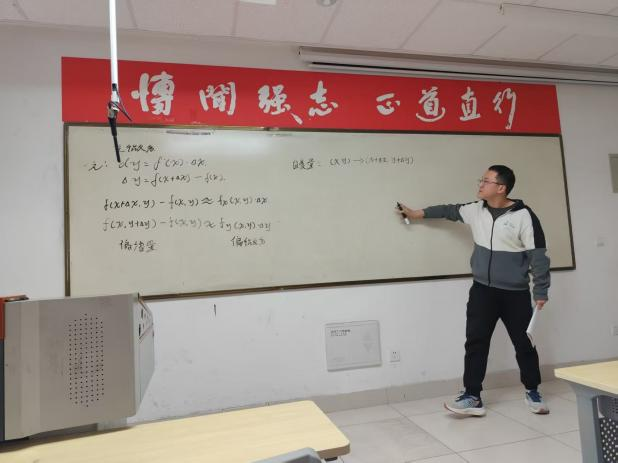 博闻强志 正道直行
一元: dy = f'(x)·Δx.
Δy = f(x+Δx) - f(x).
f(x+Δx, y) - f(x, y) ≈ fx(x, y)·Δx
f(x, y+Δy) - f(x, y) ≈ fy(x, y)·Δy
偏增量 偏微分
自变量: (x, y) → (x+Δx, y+Δy)